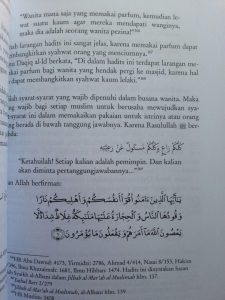 "Wanita mana saja yang memakai parfum, kemudian le-
wat suatu kaum agar mereka mendapati wanginya,
maka dia adalah seorang wanita pezina!"
larangan hadits ini sangat jelas, karena memakai parfum dapat
membangkitkan syahwat orang yang menciumnya.
Daqiq al-Id berkata, "Di dalam hadits ini terdapat larangan me-
parfum bagi wanita yang hendak pergi ke masjid, karena hal
dapat membangkitkan syahwat kaum lelaki."
syarat-syarat yang wajib dipenuhi dalam busana wanita. Maka
wajib bagi setiap muslim untuk berusaha mewujudkan sya-
ini dalam memakaikan pakaian untuk istrinya atau orang
berada di bawah tanggung jawabnya. Karena Rasulullah ﷺ ber-
sabda:
كُلُّكُمْ رَاعٍ وَكُلُّكُمْ مَسْئُولٌ عَنْ رَعِيَّتِهِ
"Ketahuilah! Setiap kalian adalah pemimpin. Dan kalian
akan dimintai pertanggungjawabannya."
Allah berfirman:
يَٰٓأَيُّهَا ٱلَّذِينَ ءَامَنُوا۟ قُوٓا۟ أَنفُسَكُمْ وَأَهْلِيكُمْ نَارًا
وَقُودُهَا ٱلنَّاسُ وَٱلْحِجَارَةُ عَلَيْهَا مَلَٰٓئِكَةٌ غِلَاظٌ شِدَادٌ لَّا
يَعْصُونَ ٱللَّهَ مَآ أَمَرَهُمْ وَيَفْعَلُونَ مَا يُؤْمَرُونَ
HR. Abu Dawud: 4173, Tirmidzi: 2786, Ahmad 4/414, Nasai
Ibnu Khuzaimah: 1681, Ibnu Hibban: 1474. Hadits ini dinyatakan hasan
Jilbab al-Mar'ah al-Muslimah, al-Albani hlm. 137